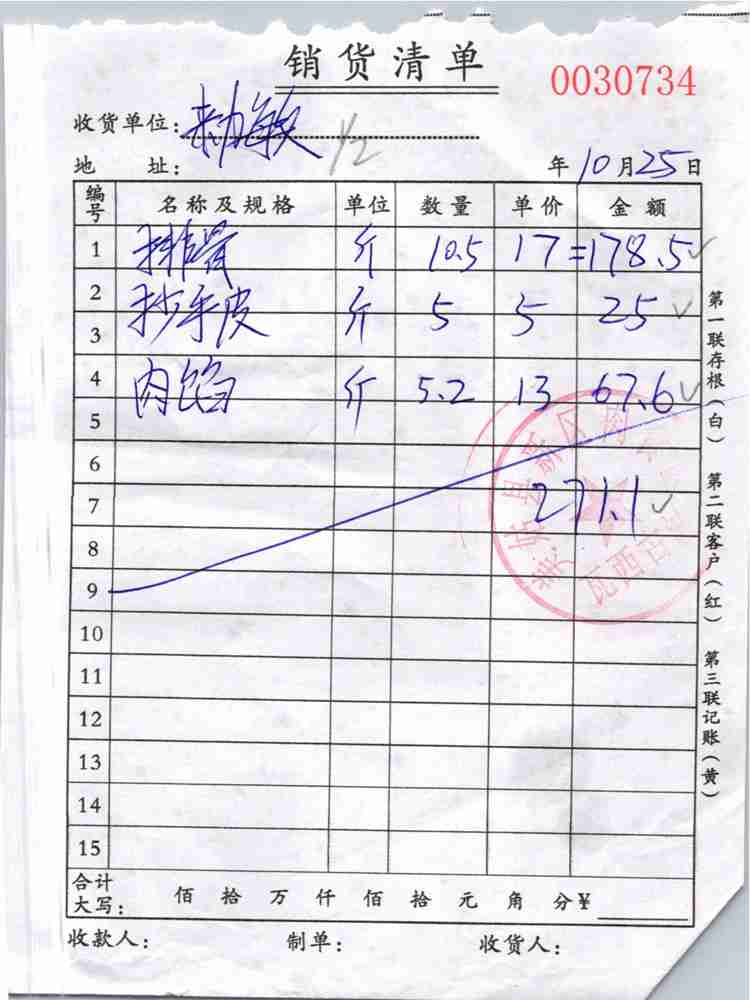 销货清单
0030734
收货单位：
地 址： 年10月25日
编号 名称及规格 单位 数量 单价 金额
1 排骨 斤 10.5 17 =178.5
2 抄手皮 斤 5 5 25
3
4 肉馅 斤 5.2 13 67.6
5
6
7 271.1
8
9
10
11
12
13
14
15
合计大写： 佰 拾 万 仟 佰 拾 元 角 分¥
收款人： 制单： 收货人：
第一联存根（白） 第二联客户（红） 第三联记账（黄）